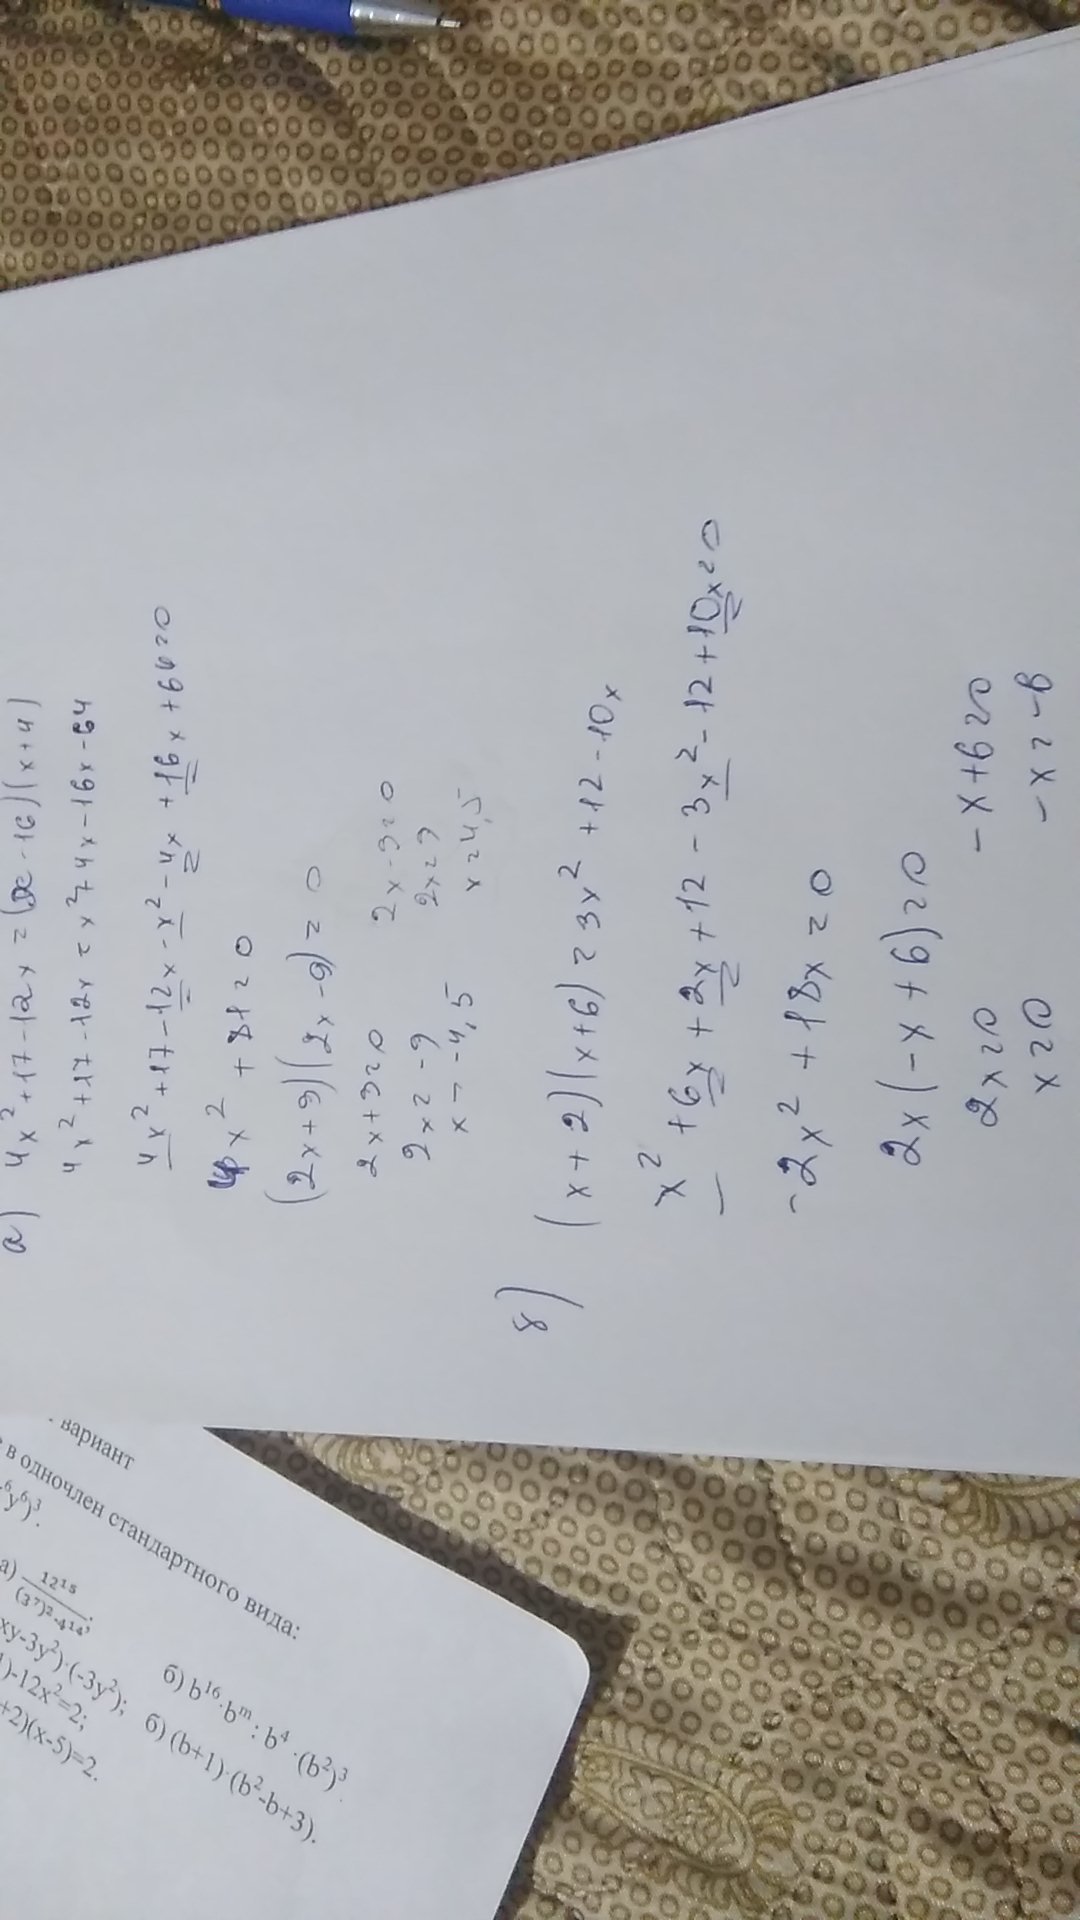 а) 4x² + 17 - 12x = (x - 16)(x + 4)
4x² + 17 - 12x = x² + 4x - 16x - 64
4x² + 17 - 12x - x² - 4x + 16x + 64 = 0
x² + 81 = 0
(2x + 9)(2x - 9) = 0
2x + 9 = 0 2x - 9 = 0
2x = -9 2x = 9
x = -4,5 x = 4,5
б) (x + 2)(x + 6) = 3x² + 12 - 10x
x² + 6x + 2x + 12 - 3x² - 12 + 10x = 0
-2x² + 18x = 0
2x(-x + 6) = 0
2x = 0 -x + 6 = 0
x = 0 -x = -6
вариант
в одночлен стандартного вида:
⁶y⁶)³.
а) 12¹⁵/(3⁷)²·4¹⁴; б) b¹⁶·bᵐ : b⁴·(b²)³.
xy-3y²)·(-3y²); б) (b+1)·(b²-b+3).
)-12x²=2;
+2)(x-5)=2.